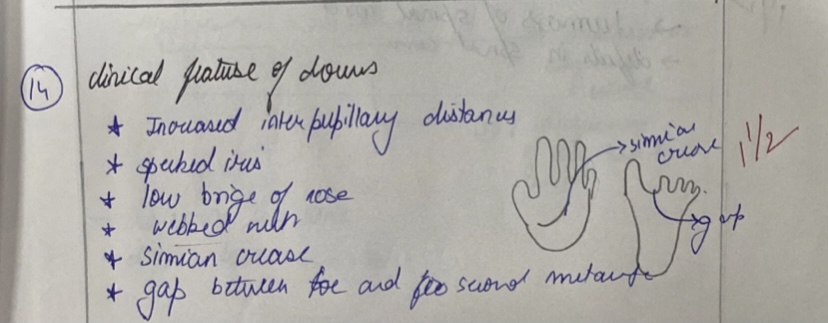 14
clinical feature of downs
* Increased interpupillary distances
* specked iris
* low brige of nose
* webbed neck
* simian crease
* gap between toe and second
simian
crease
gap
1 1/2